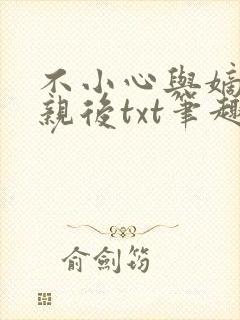 不小心與嫡
親後txt筆趣
俞劍筠